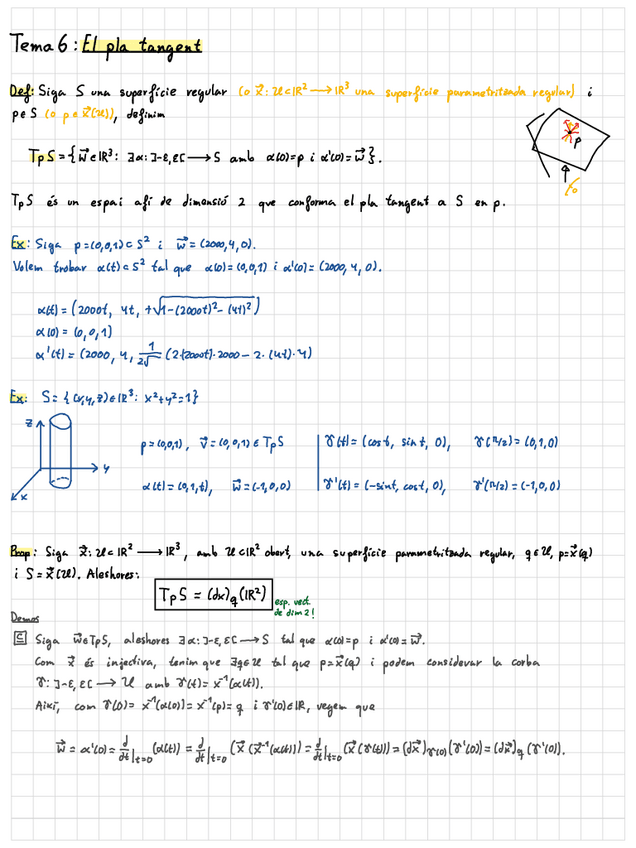 Tema 6: El pla tangent
Def: Siga S una superfície regular (o x⃗: U⊂ℝ² → ℝ³ una superfície parametritzada regular) i
p∈S (o p∈x⃗(U)), definim
TpS = {w⃗∈ℝ³: ∃α: ]-ε,ε[ → S amb α(0)=p i α'(0)=w⃗}.
p
TpS és un espai afí de dimensió 2 que conforma el pla tangent a S en p.
Ex: Siga p=(0,0,1)⊂S² i w⃗=(2000,4,0).
Volem trobar α(t)⊂S² tal que α(0)=(0,0,1) i α'(0)=(2000,4,0).
α(t)=(2000t, 4t, +√(1-(2000t)²-(4t)²))
α(0)=(0,0,1)
α'(t)=(2000, 4, 1/(2√) (2(2000t)·2000-2·(4t)·4)
Ex: S={(x,y,z)∈ℝ³: x²+y²=1}
z
y
x
p=(0,0,1), v⃗=(0,0,1)∈TpS γ(t)=(cost, sint, 0), γ(π/2)=(0,1,0)
α(t)=(0,1,t), w⃗=(-1,0,0) γ'(t)=(-sint, cost, 0), γ'(π/2)=(-1,0,0)
Prop: Siga x⃗: U⊂ℝ² → ℝ³, amb U⊂ℝ² obert, una superfície parametritzada regular, q∈U, p=x⃗(q)
i S=x⃗(U). Aleshores:
TpS = (dx)q(ℝ²)
esp. vect.
de dim 2!
Demos
⊆ Siga w⃗∈TpS, aleshores ∃α: ]-ε,ε[ → S tal que α(0)=p i α'(0)=w⃗.
Com x⃗ és injectiva, tenim que ∃q∈U tal que p=x⃗(q) i podem considerar la corba
γ: ]-ε,ε[ → U amb γ(t)=x⁻¹(α(t)).
Així, com γ(0)=x⁻¹(α(0))=x⁻¹(p)=q i γ'(0)∈ℝ, vegem que
w⃗=α'(0)=d/dt|t=0(α(t))=d/dt|t=0(x⃗(x⃗⁻¹(α(t))))=d/dt|t=0(x⃗(γ(t)))=(dx⃗)γ(0)(γ'(0))=(dx⃗)q(γ'(0)).